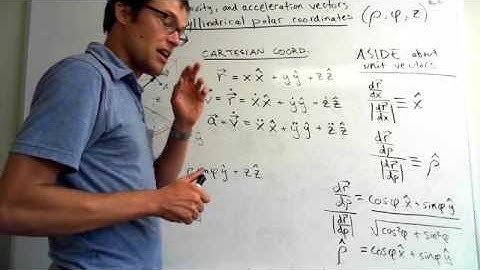 and acceleration vectors
cylindrical polar coordinates (ρ, φ, z)
CARTESIAN COORD:
r⃗ = x x̂ + y ŷ + z ẑ
v⃗ = r⃗̇ = ẋ x̂ + ẏ ŷ + ż ẑ
a⃗ = v⃗̇ = ẍ x̂ + ÿ ŷ + z̈ ẑ
sinφ ŷ + z ẑ
ASIDE about
unit vectors
dr⃗/dx / |dr⃗/dx| ≡ x̂
dr⃗/dρ / |dr⃗/dρ| ≡ ρ̂
dr⃗/dρ / |dr⃗/dρ| = cosφ x̂ + sinφ ŷ / √(cos²φ + sin²φ)
ρ̂ = cosφ x̂ + sinφ ŷ